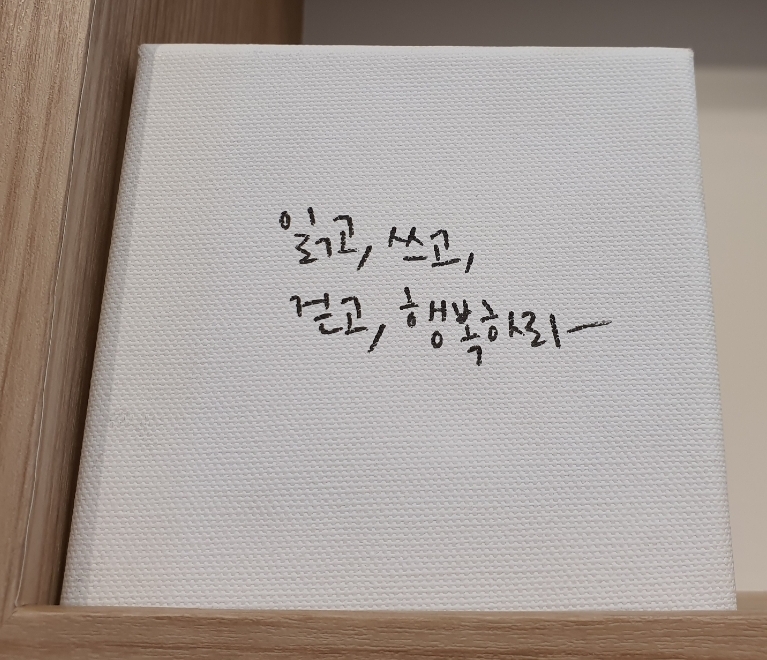 읽고, 쓰고,
걷고, 행복하리—